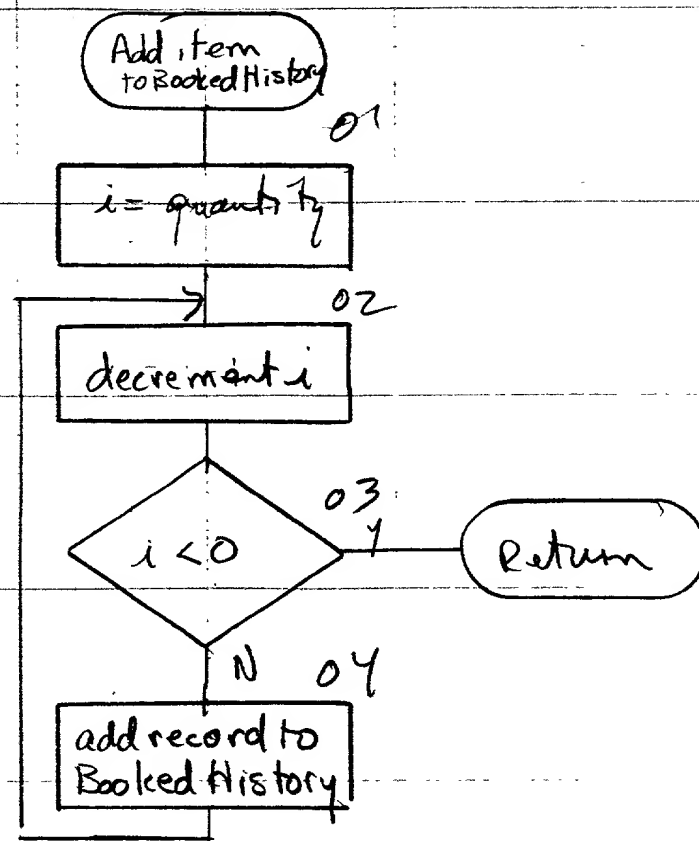 Add item
to Booked History
01
i = quantity
02
decrement i
03
i < 0
Y
Return
N
04
add record to
Booked History